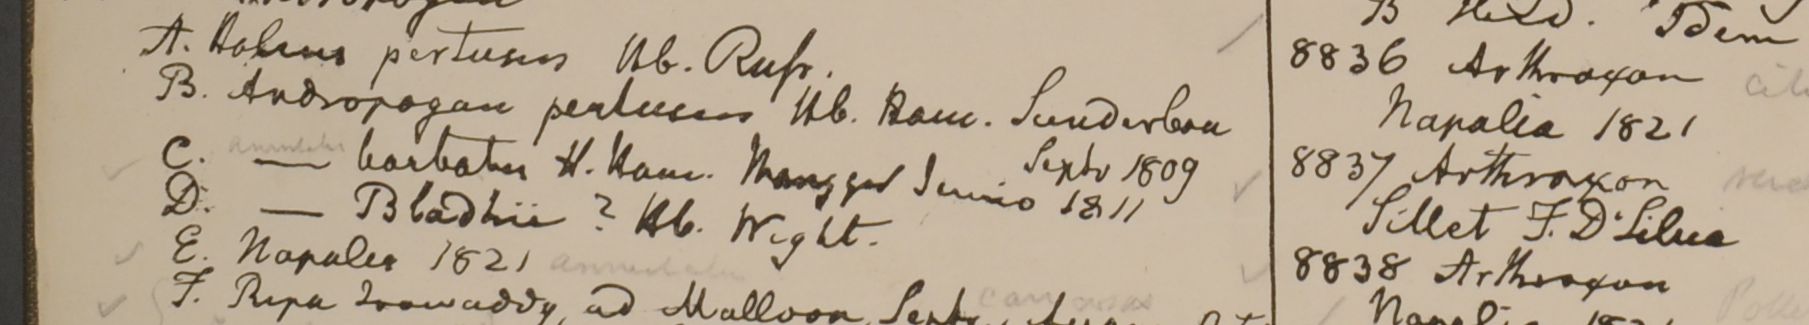 A. Holcus pertusus Hb. Ruſr.
B. Andropogon pertusus Hb. Ham. Sunderbon
Septr 1809
C. annulatus — barbatus H. Ham. Junio 1811
D. — Bladhii ? Hb. Wight.
E. Napalia 1821 annulatus
F. Ripa Irawaddy, ad Malloon, Septr
B Heyd. Idem
8836 Arthraxon
Napalia 1821
8837 Arthraxon
Sillet F. D'Silva
8838 Arthraxon
Napalia 1821